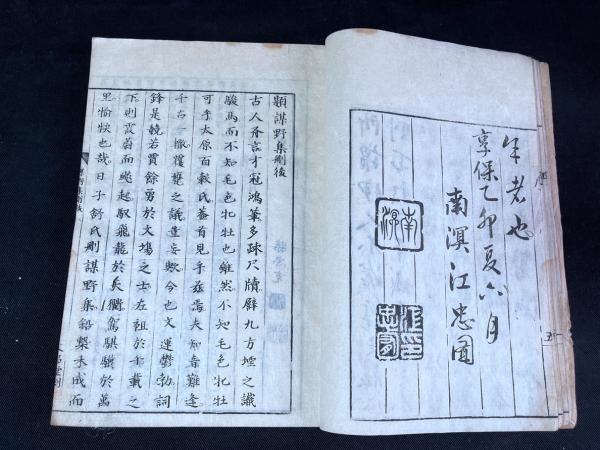 年老也
享保乙卯夏六月
南溟江忠囿
南溟
題謀野集刪後
古人有言才冠鴻筆多疎尺牘辟九方堙之識
駿馬而不知毛色牝牡也雖然不知毛色牝牡
可乎太原百穀氏盖有見乎茲焉夫知音難逢
千古一慨覆甕之議豈妄歟今也文運鬱勃詞
鋒是競若賈餘勇於文場之士左袒於千載之
下則霞蓊而飈起馭飛龍於天衢駕騏驥於萬
里愉快也哉日子舒氏刪謀野集鉛槧未成而